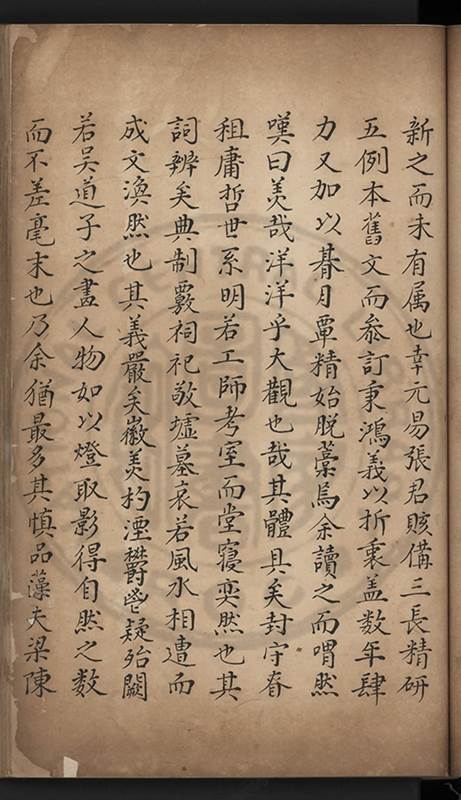 新之而未有属也幸元易張君賅備三長精研
五例本舊文而叅訂秉鴻義以折衷盖数年肆
力又加以朞月覃精始脱藁焉余讀之而喟然
嘆曰美哉洋洋乎大觀也哉其體具矣封守眘
租庸哲世系明若工師考室而堂寢奕然也其
詞辨矣典制覈祠祀敬墟墓哀若風水相遭而
成文渙然也其義嚴矣徽美杓湮欝訾疑殆闕
若吳道子之畫人物如以燈取影得自然之数
而不差毫末也乃余猶最多其慎品藻夫梁陳